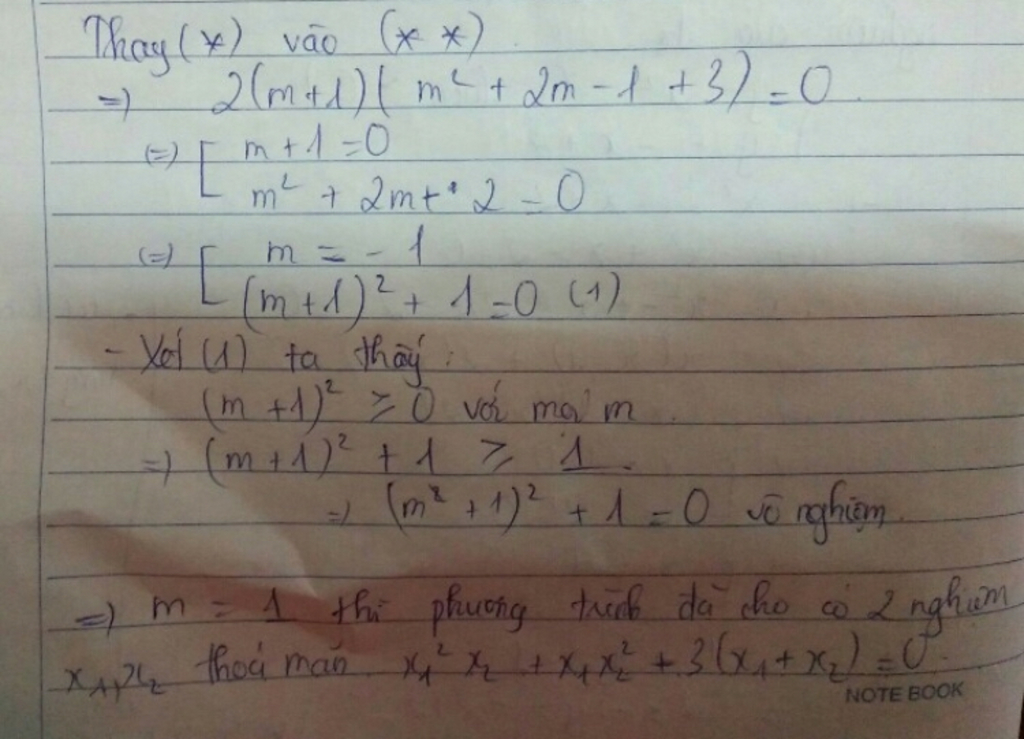 Thay (*) vào (* *)
=) 2(m+1)( m² + 2m - 1 + 3) = 0.
(=) [ m + 1 = 0
m² + 2m + 2 = 0
(=) [ m = - 1
(m+1)² + 1 = 0 (1)
- Xét (1) ta thấy :
(m +1)² ≥ 0 với mọi m.
=) (m+1)² + 1 ≥ 1.
=) (m² +1)² + 1 = 0 vô nghiệm.
=) m = 1 thì phương trình đã cho có 2 nghiệm
x₁, x₂ thoả mãn x₁² x₂ + x₁ x₂² + 3(x₁ + x₂) = 0.
NOTE BOOK